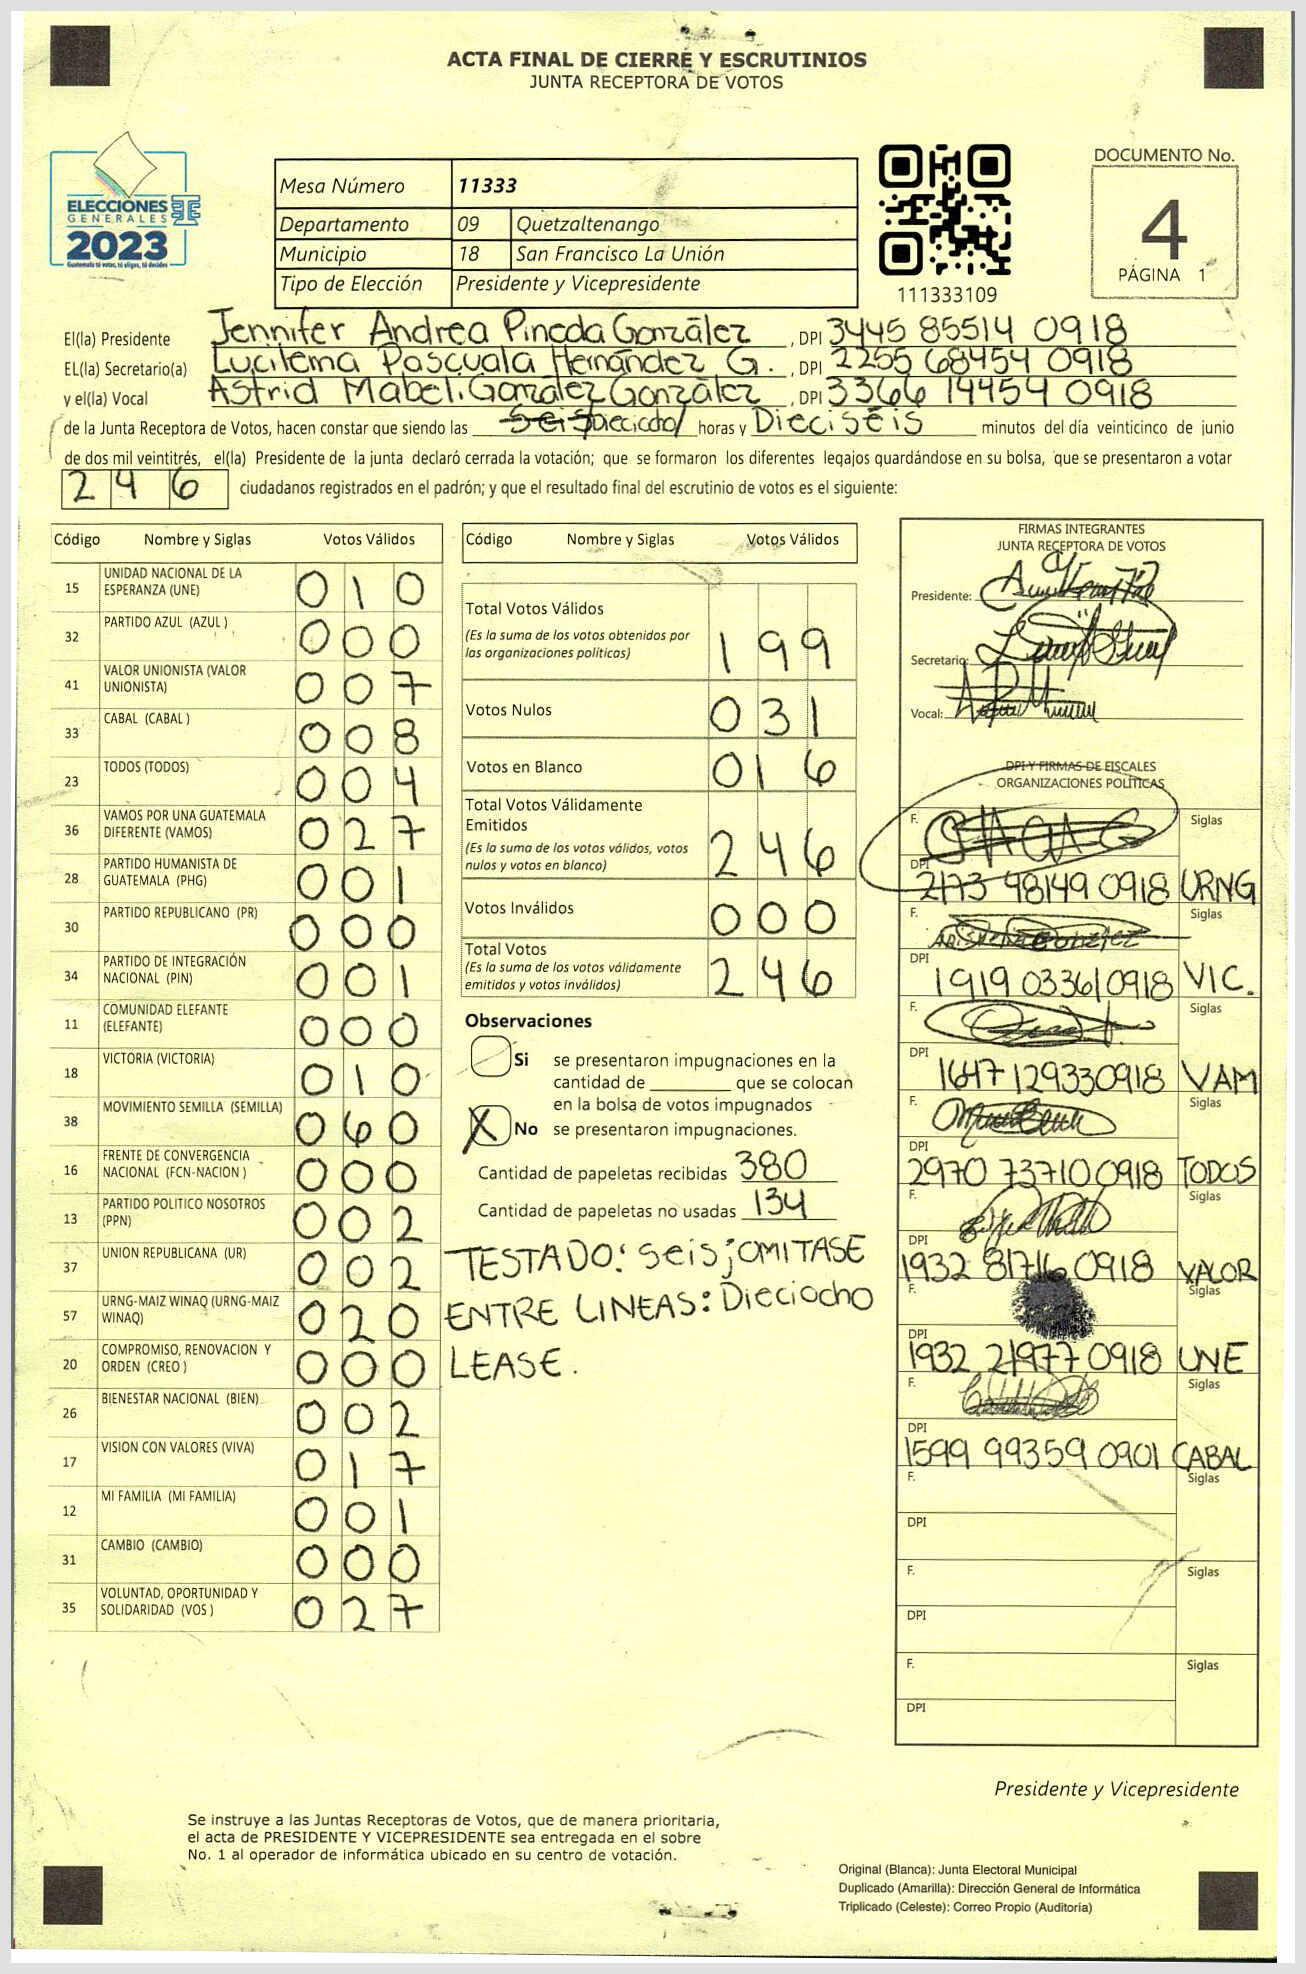 ACTA FINAL DE CIERRE Y ESCRUTINIOS
JUNTA RECEPTORA DE VOTOS
ELECCIONES
GENERALES
2023
Guatemala tú votas, tú eliges, tú decides
Mesa Número 11333
Departamento 09 Quetzaltenango
Municipio 18 San Francisco La Unión
Tipo de Elección Presidente y Vicepresidente
111333109
DOCUMENTO No.
4
PÁGINA 1
El(la) Presidente Jennifer Andrea Pineda González , DPI 3445 85514 0918
EL(la) Secretario(a) Lucilema Pascuala Hernández G. , DPI 2255 68454 0918
y el(la) Vocal Astrid Mabeli González González , DPI 3366 14454 0918
de la Junta Receptora de Votos, hacen constar que siendo las seis Dieciocho horas y Dieciséis minutos del día veinticinco de junio
de dos mil veintitrés, el(la) Presidente de la junta declaró cerrada la votación; que se formaron los diferentes legajos guardándose en su bolsa, que se presentaron a votar
246 ciudadanos registrados en el padrón; y que el resultado final del escrutinio de votos es el siguiente:
Código Nombre y Siglas Votos Válidos
15 UNIDAD NACIONAL DE LA ESPERANZA (UNE) 010
32 PARTIDO AZUL (AZUL ) 000
41 VALOR UNIONISTA (VALOR UNIONISTA) 007
33 CABAL (CABAL ) 008
23 TODOS (TODOS) 004
36 VAMOS POR UNA GUATEMALA DIFERENTE (VAMOS) 027
28 PARTIDO HUMANISTA DE GUATEMALA (PHG) 001
30 PARTIDO REPUBLICANO (PR) 000
34 PARTIDO DE INTEGRACIÓN NACIONAL (PIN) 001
11 COMUNIDAD ELEFANTE (ELEFANTE) 000
18 VICTORIA (VICTORIA) 010
38 MOVIMIENTO SEMILLA (SEMILLA) 060
16 FRENTE DE CONVERGENCIA NACIONAL (FCN-NACION ) 000
13 PARTIDO POLITICO NOSOTROS (PPN) 002
37 UNION REPUBLICANA (UR) 002
57 URNG-MAIZ WINAQ (URNG-MAIZ WINAQ) 020
20 COMPROMISO, RENOVACION Y ORDEN (CREO ) 000
26 BIENESTAR NACIONAL (BIEN) 002
17 VISION CON VALORES (VIVA) 017
12 MI FAMILIA (MI FAMILIA) 001
31 CAMBIO (CAMBIO) 000
35 VOLUNTAD, OPORTUNIDAD Y SOLIDARIDAD (VOS ) 027
Código Nombre y Siglas Votos Válidos
Total Votos Válidos
(Es la suma de los votos obtenidos por
las organizaciones políticas) 199
Votos Nulos 031
Votos en Blanco 016
Total Votos Válidamente
Emitidos
(Es la suma de los votos válidos, votos
nulos y votos en blanco) 246
Votos Inválidos 000
Total Votos
(Es la suma de los votos válidamente
emitidos y votos inválidos) 246
Observaciones
Si se presentaron impugnaciones en la
cantidad de ________ que se colocan
en la bolsa de votos impugnados
X No se presentaron impugnaciones.
Cantidad de papeletas recibidas 380
Cantidad de papeletas no usadas 134
TESTADO: seis; OMITASE
ENTRE LINEAS: Dieciocho
LEASE.
FIRMAS INTEGRANTES
JUNTA RECEPTORA DE VOTOS
Presidente:
Secretario:
Vocal:
DPI Y FIRMAS DE FISCALES
ORGANIZACIONES POLÍTICAS
F. Siglas
DPI 2173 48149 0918 URNG
F. Siglas
DPI 1919 03361 0918 VIC.
F. Siglas
DPI 1647 12933 0918 VAM
F. Siglas
DPI 2970 73710 0918 TODOS
F. Siglas
DPI 1932 81716 0918 VALOR
F. Siglas
DPI 1932 21977 0918 UNE
F. Siglas
DPI 1599 99359 0901 CABAL
F. Siglas
DPI
F. Siglas
DPI
F. Siglas
DPI
Presidente y Vicepresidente
Se instruye a las Juntas Receptoras de Votos, que de manera prioritaria,
el acta de PRESIDENTE Y VICEPRESIDENTE sea entregada en el sobre
No. 1 al operador de informática ubicado en su centro de votación.
Original (Blanca): Junta Electoral Municipal
Duplicado (Amarilla): Dirección General de Informática
Triplicado (Celeste): Correo Propio (Auditoría)